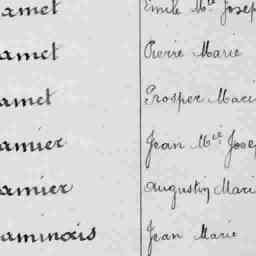 amet Emile Mie Josep
amet Pierre Marie
amet Prosper Mari
amier Jean Mie Josep
amier Augustin Mari
aminais Jean Marie